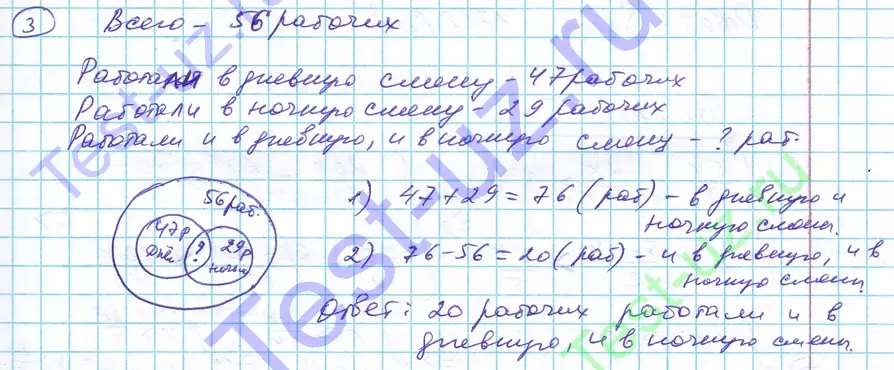 3 Всего - 56 рабочих
Работали в дневную смену - 47 рабочих
Работали в ночную смену - 29 рабочих
Работали и в дневную, и в ночную смену - ? раб.
56 раб.
47р Днём ? 29р ночью
1) 47+29=76 (раб) - в дневную и ночную смены.
2) 76-56=20 (раб) - и в дневную, и в ночную смены.
Ответ: 20 рабочих работали и в
дневную, и в ночную смены.
Test-uz.ru
Test-uz.ru
Test-uz.ru